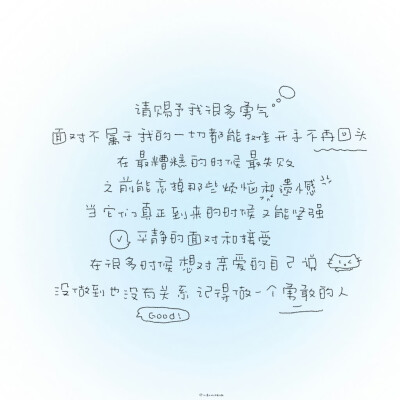 请赐予我很多勇气
面对不属于我的一切都能摊开手不再回头
在最糟糕的时候最失败
之前能忘掉那些烦恼和遗憾
当它们真正到来的时候又能坚强
平静的面对和接受
在很多时候想对亲爱的自己说
没做到也没有关系记得做一个勇敢的人
GOOD!